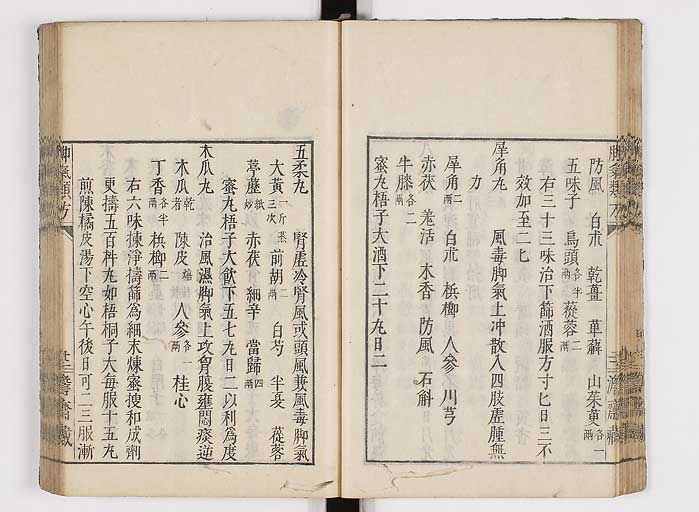 防風 白朮 乾薑 萆薢 山茱萸各一兩
五味子 烏頭各半兩 蓯蓉二兩
右三十三味治下篩酒服方寸匕日三不
效加至二匕
犀角丸 風毒脚氣上冲散入四肢虛腫無
力
犀角二兩 白朮 檳榔 人參 川芎
赤茯 羌活 木香 防風 石斛
牛膝各一兩
蜜丸梧子大酒下二十丸日二
五柔丸 腎虛冷腎風或頭風兼風毒脚氣
大黃一斤蒸三次 前胡二兩 白芍 半夏 蓯蓉
葶藶紙炒 赤茯 細辛 當歸四兩
蜜丸梧子大飲下五七丸日二以利爲度
木瓜丸 治風濕脚氣上攻胷腹壅悶痰逆
木瓜乾者 陳皮 人參各一兩 桂心
丁香各半兩 檳榔二兩
右六味揀淨擣篩爲細末煉蜜搜和成劑
更擣五百杵丸如梧桐子大每服十五丸
煎陳橘皮湯下空心午後日可二三服漸
脚氣類方